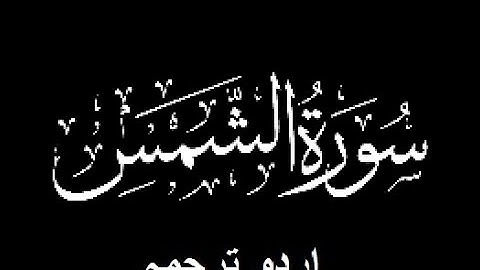 سُورَةُ الشَّمْسِ
اردو ترجمہ